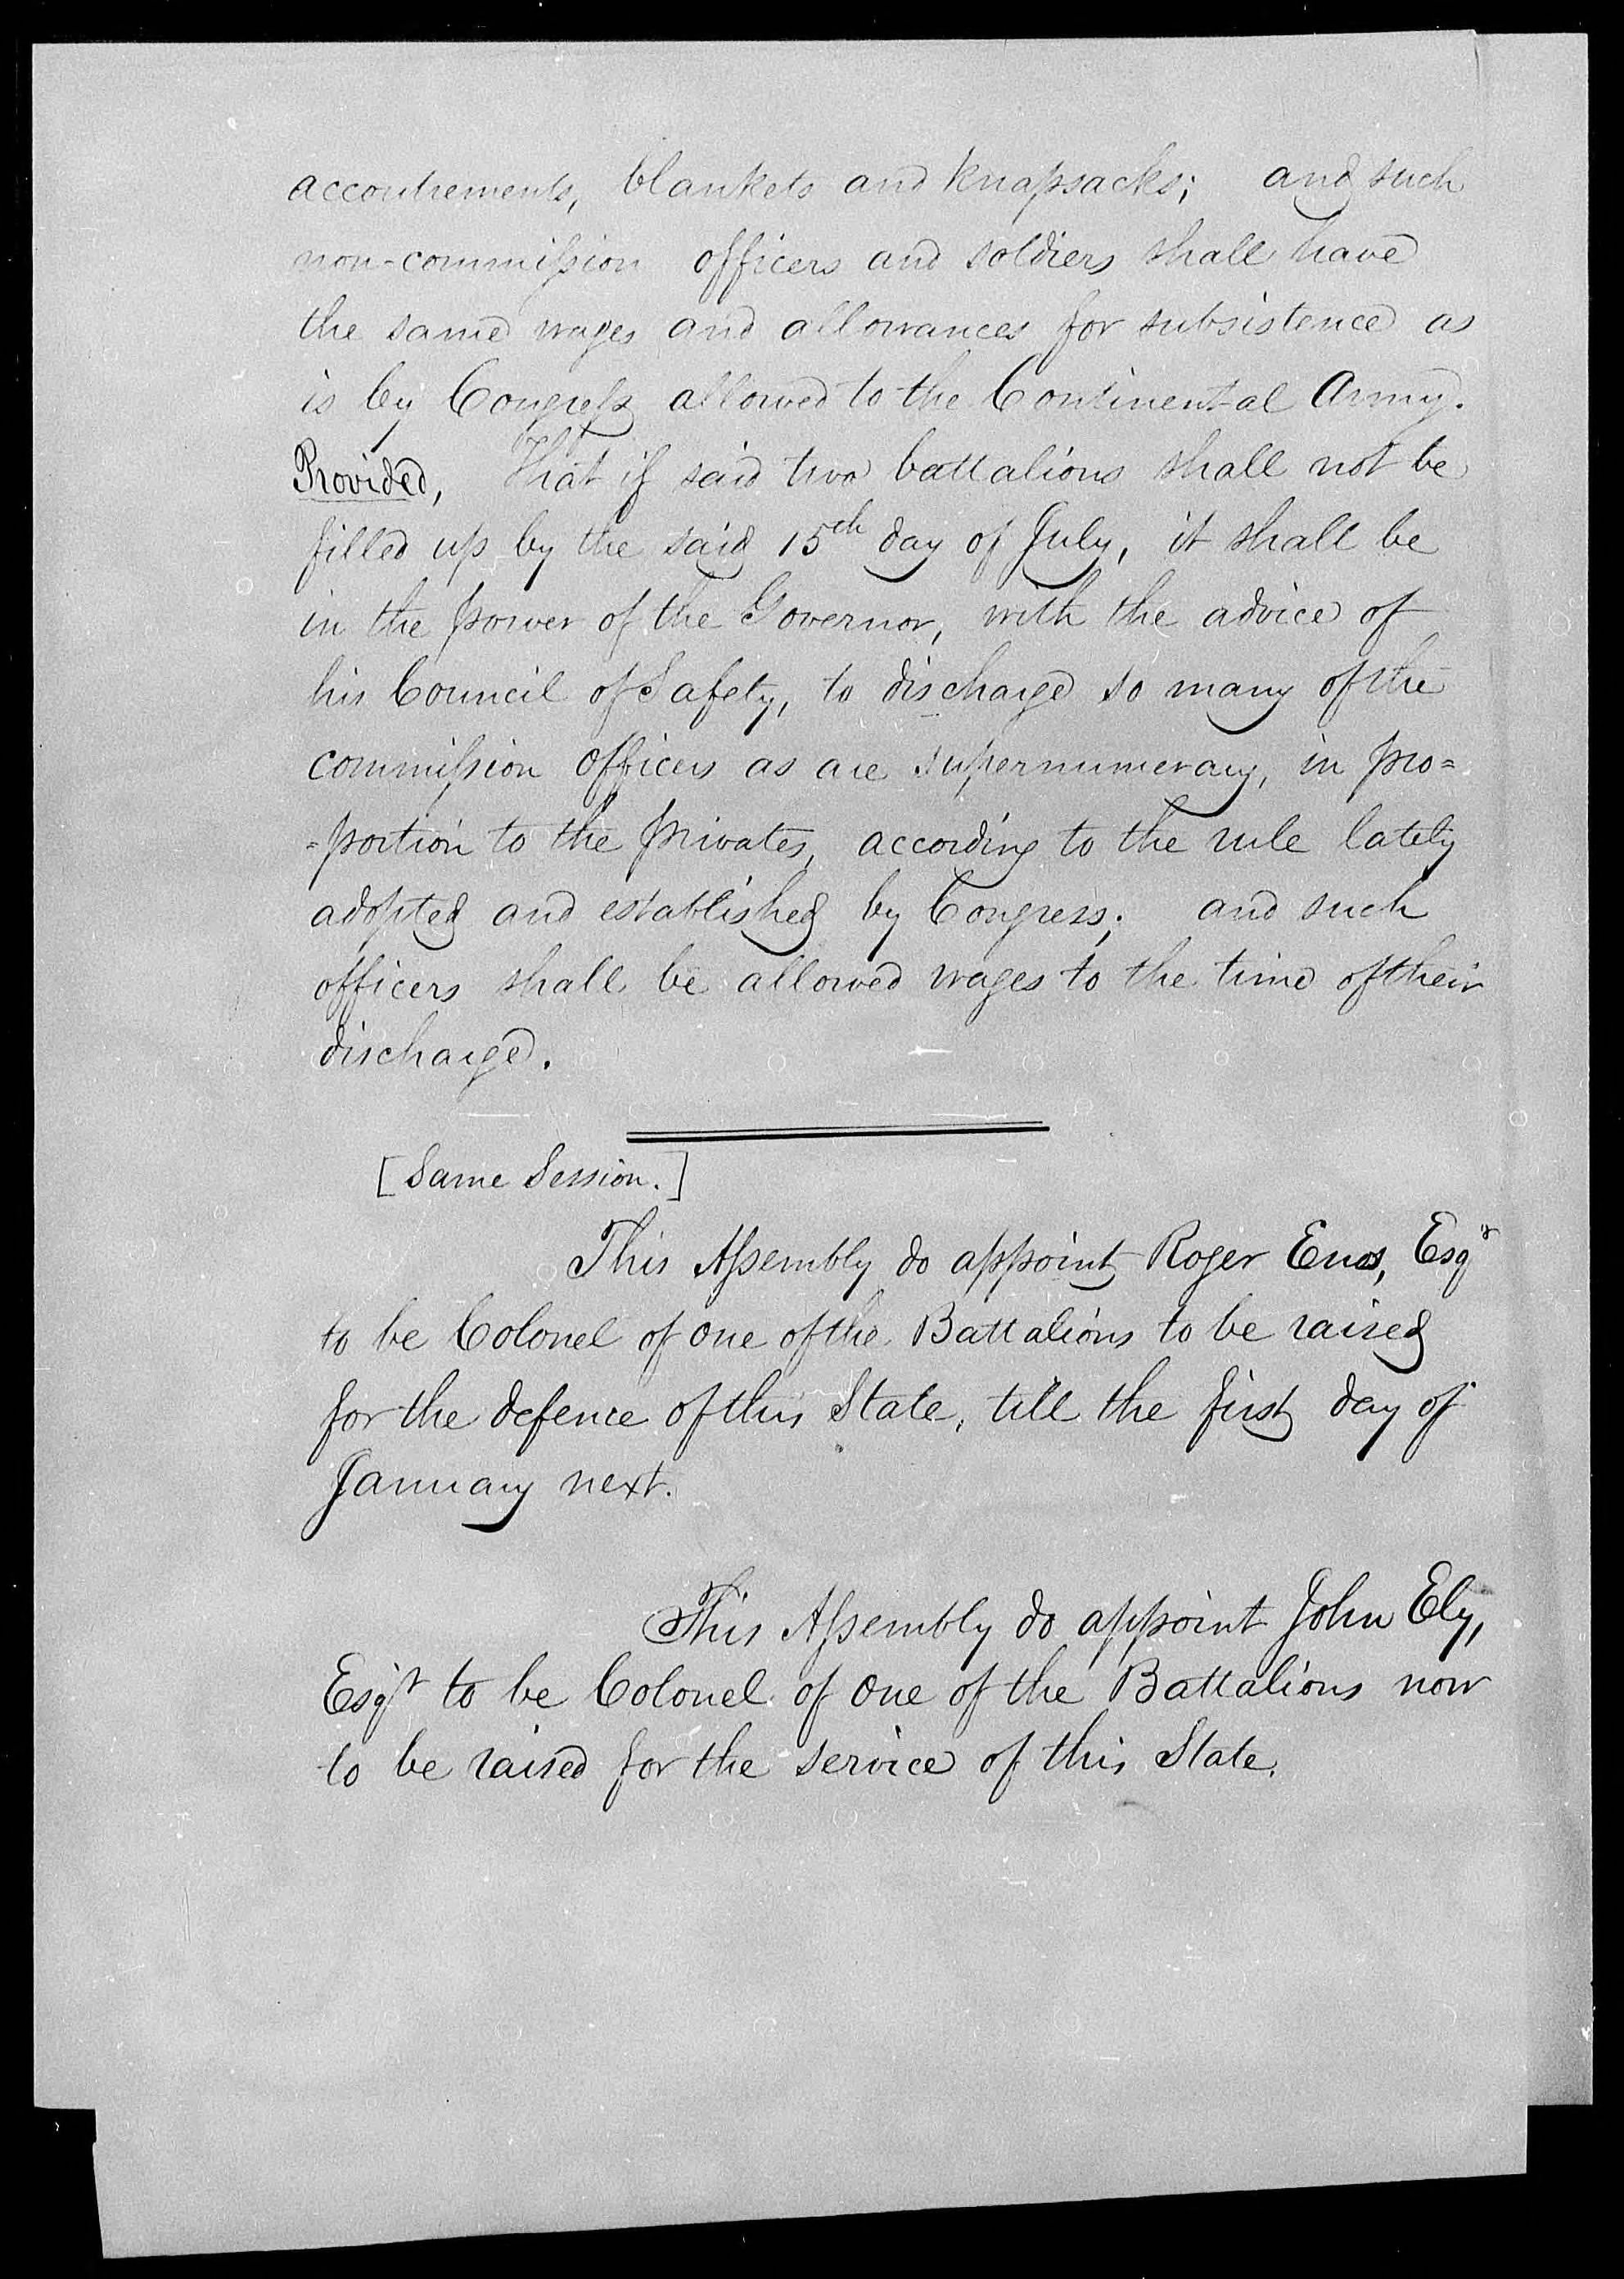 accoutrements, blankets and knapsacks; and such
non-commiſsion officers and soldiers shall have
the same wages and allowances for subsistence as
is by Congreſs allowed to the Continental Army.
Provided, That if said two battalions shall not be
filled up by the said 15th day of July, it shall be
in the power of the Governor, with the advice of
his Council of Safety, to discharge so many of the
commiſsion officers as are supernumerary, in pro=
=portion to the privates, according to the rule lately
adopted and established by Congress; and such
officers shall be allowed wages to the time of their
discharge.
[Same Session.]
This Aſsembly do appoint Roger Enos, Esqr
to be Colonel of one of the Battalions to be raised
for the defence of this State, till the first day of
January next.
This Aſsembly do appoint John Ely,
Esqr to be Colonel of one of the Battalions now
to be raised for the service of this State.